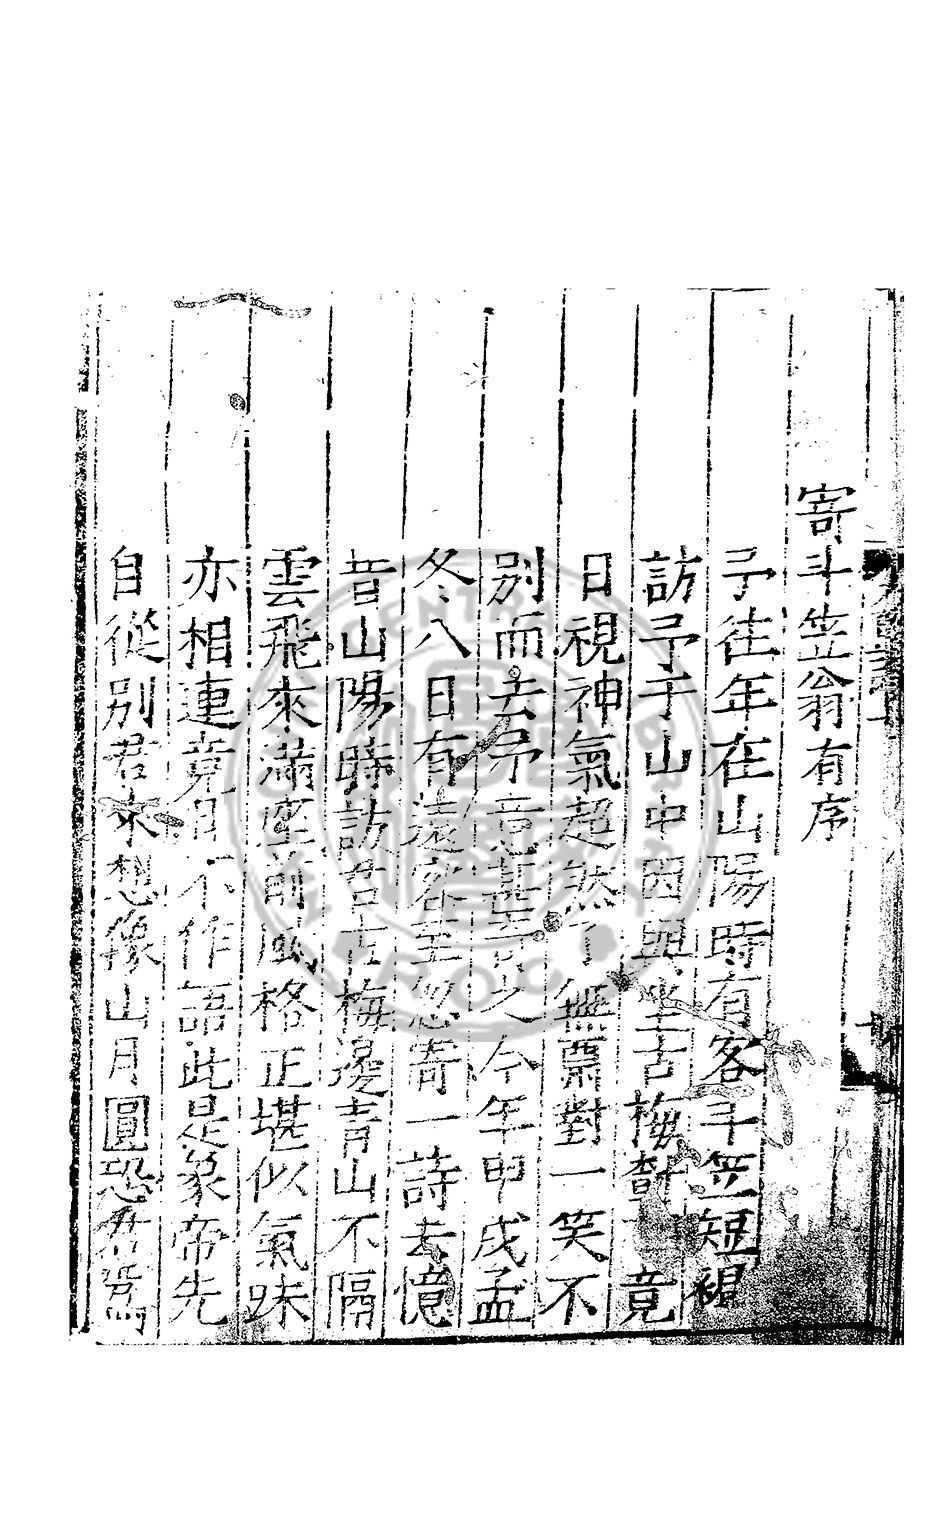 寄斗笠翁有序
予往年在山陽時有客斗笠短褐
訪予于山中因與坐古梅樹下竟
日視神氣超然了無藁對一笑不
別而去予意甚異之今年甲戌孟
冬八日有遠客至忽寄一詩去憶
昔山陽時訪君古梅邊青山不隔
雲飛來滿座前風格正堪似氣味
亦相連竟日不作語此是象帝先
自從別君來想像山月圓恐君